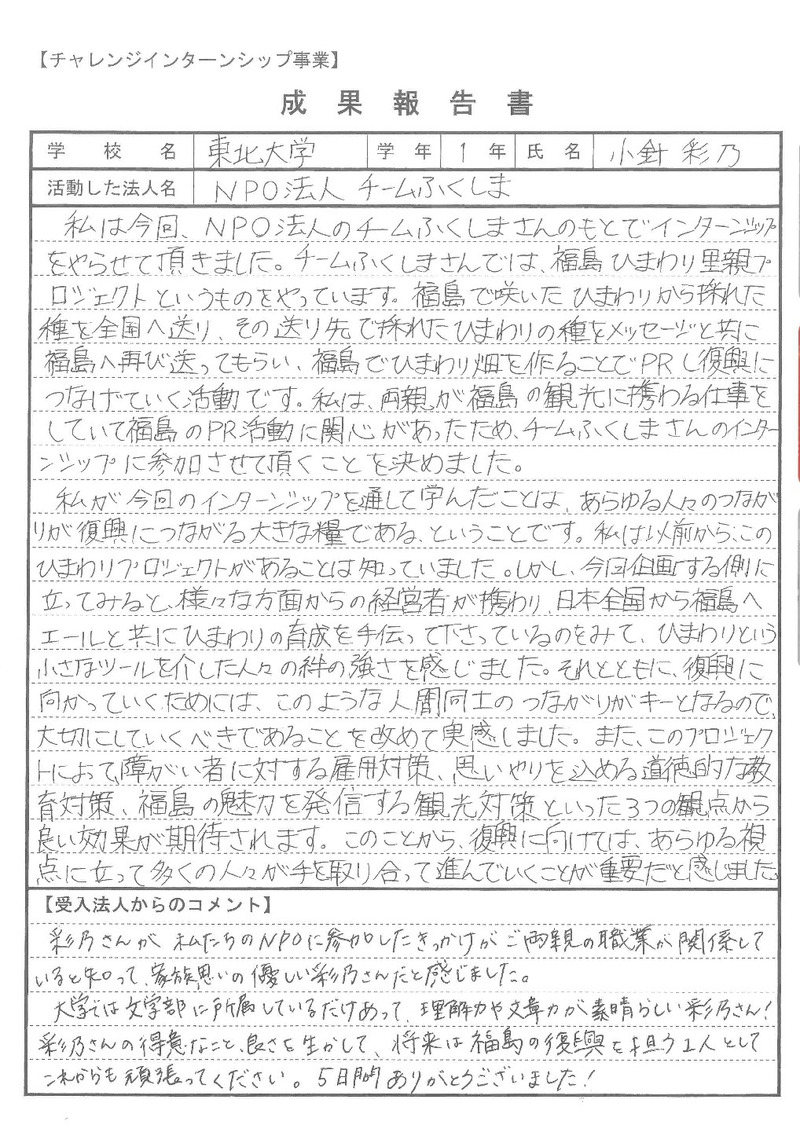 【チャレンジインターンシップ事業】
成果報告書
学校名 東北大学 学年 1年 氏名 小針 彩乃
活動した法人名 NPO法人 チームふくしま
私は今回、NPO法人のチームふくしまさんのもとでインターンシップ
をやらせて頂きました。チームふくしまさんでは、福島ひまわり里親プ
ロジェクトというものをやっています。福島で咲いたひまわりから採れた
種を全国へ送り、その送り先で採れたひまわりの種をメッセージと共に
福島へ再び送ってもらい、福島でひまわり畑を作ることでPRし復興に
つなげていく活動です。私は、両親が福島の観光に携わる仕事を
していて福島のPR活動に関心があったため、チームふくしまさんのインター
ンシップに参加させて頂くことを決めました。
私が今回のインターンシップを通して学んだことは、あらゆる人々のつなが
りが復興につながる大きな糧である、ということです。私は以前から、この
ひまわりプロジェクトがあることは知っていました。しかし、今回企画する側に
立ってみると、様々な方面からの経営者が携わり、日本全国から福島へ
エールと共にひまわりの育成を手伝って下さっているのをみて、ひまわりという
小さなツールを介した人々の絆の強さを感じました。それとともに、復興に
向かっていくためには、このような人間同士のつながりがキーとなるので、
大切にしていくべきであることを改めて実感しました。また、このプロジェク
トによって、障がい者に対する雇用対策、思いやりを込める道徳的な教
育対策、福島の魅力を発信する観光対策といった3つの観点から
良い効果が期待されます。このことから、復興に向けては、あらゆる視
点に立って多くの人々が手を取り合って進んでいくことが重要だと感じました。
【受入法人からのコメント】
彩乃さんが 私たちのNPOに参加したきっかけがご両親の職業が関係して
いると知って、家族思いの優しい彩乃さんだと感じました。
大学では文学部に所属しているだけあって、理解力や文章力が素晴らしい彩乃さん!
彩乃さんの得意なこと、良さを生かして、将来は福島の復興を担う1人として
これからも頑張ってください。5日間ありがとうございました!